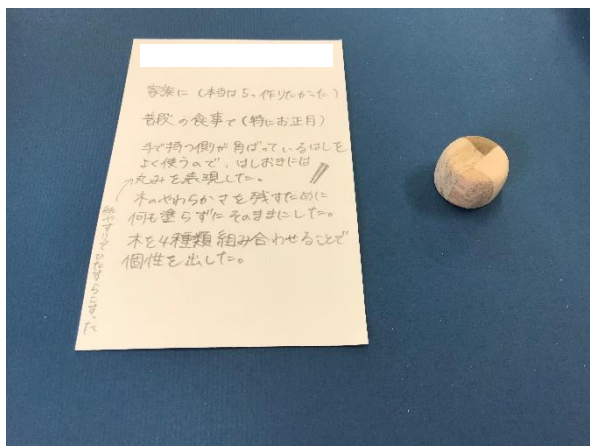 家族に(本当は5つ作りたかった)
普段の食事で(特にお正月)
手で持つ側が角ばっているはしを
よく使うので、はしおきには
丸みを表現した。
木のやわらかさを残すために
何も塗らずにそのままにした。
木を4種類組み合わせることで
個性を出した。
紙やすりでひたすらこすった